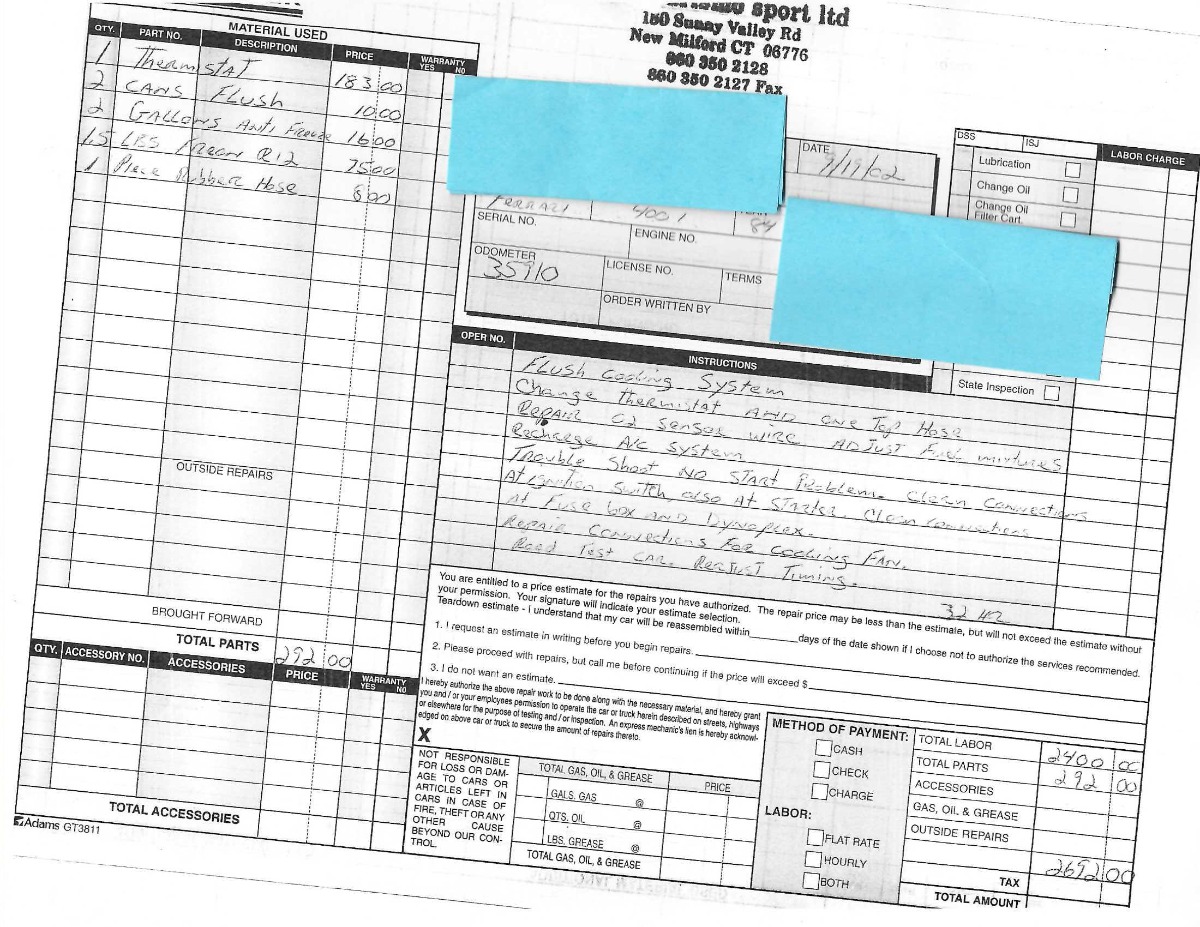 sport ltd
150 Sunny Valley Rd
New Milford CT 06776
860 350 2128
860 350 2127 Fax
MATERIAL USED
QTY. PART NO. DESCRIPTION PRICE WARRANTY YES NO
1 Thermistat 183.00
2 CANS Flush 10.00
2 Gallons Anti Freeze 16.00
1.5 LBS Freon R12 75.00
1 Piece Rubber Hose 8.00
OUTSIDE REPAIRS
BROUGHT FORWARD
TOTAL PARTS 292 00
QTY. ACCESSORY NO. ACCESSORIES PRICE WARRANTY YES NO
TOTAL ACCESSORIES
Adams GT3811
DATE 9/19/02
Ferrari 400 i 84
SERIAL NO. ENGINE NO.
ODOMETER 35910 LICENSE NO. TERMS
ORDER WRITTEN BY
DSS ISJ LABOR CHARGE
Lubrication
Change Oil
Change Oil
Filter Cart.
State Inspection
OPER NO. INSTRUCTIONS
Flush Cooling System
Change Thermistat AND one Top Hose
Repair O2 sensor wire ADJUST Fuel mixtures
Recharge A/C System
Trouble Shoot NO START Problem. Clean Connections
At ignition Switch also At Starter. Clean connections
At Fuse box AND Dynoplex.
Repair Connections FOR Cooling FAN.
Road Test CAR. ReAdjust Timing.
32 HR
You are entitled to a price estimate for the repairs you have authorized. The repair price may be less than the estimate, but will not exceed the estimate without
your permission. Your signature will indicate your estimate selection.
Teardown estimate - I understand that my car will be reassembled within ______ days of the date shown if I choose not to authorize the services recommended.
1. I request an estimate in writing before you begin repairs.
2. Please proceed with repairs, but call me before continuing if the price will exceed $
3. I do not want an estimate.
I hereby authorize the above repair work to be done along with the necessary material, and hereby grant
you and / or your employees permission to operate the car or truck herein described on streets, highways
or elsewhere for the purpose of testing and / or inspection. An express mechanic's lien is hereby acknowl-
edged on above car or truck to secure the amount of repairs thereto.
X
NOT RESPONSIBLE
FOR LOSS OR DAM-
AGE TO CARS OR
ARTICLES LEFT IN
CARS IN CASE OF
FIRE, THEFT OR ANY
OTHER CAUSE
BEYOND OUR CON-
TROL.
TOTAL GAS, OIL, & GREASE PRICE
GALS. GAS @
QTS. OIL @
LBS. GREASE @
TOTAL GAS, OIL, & GREASE
METHOD OF PAYMENT:
CASH
CHECK
CHARGE
LABOR:
FLAT RATE
HOURLY
BOTH
TOTAL LABOR 2400 00
TOTAL PARTS 292 00
ACCESSORIES
GAS, OIL, & GREASE
OUTSIDE REPAIRS
2692 00
TAX
TOTAL AMOUNT